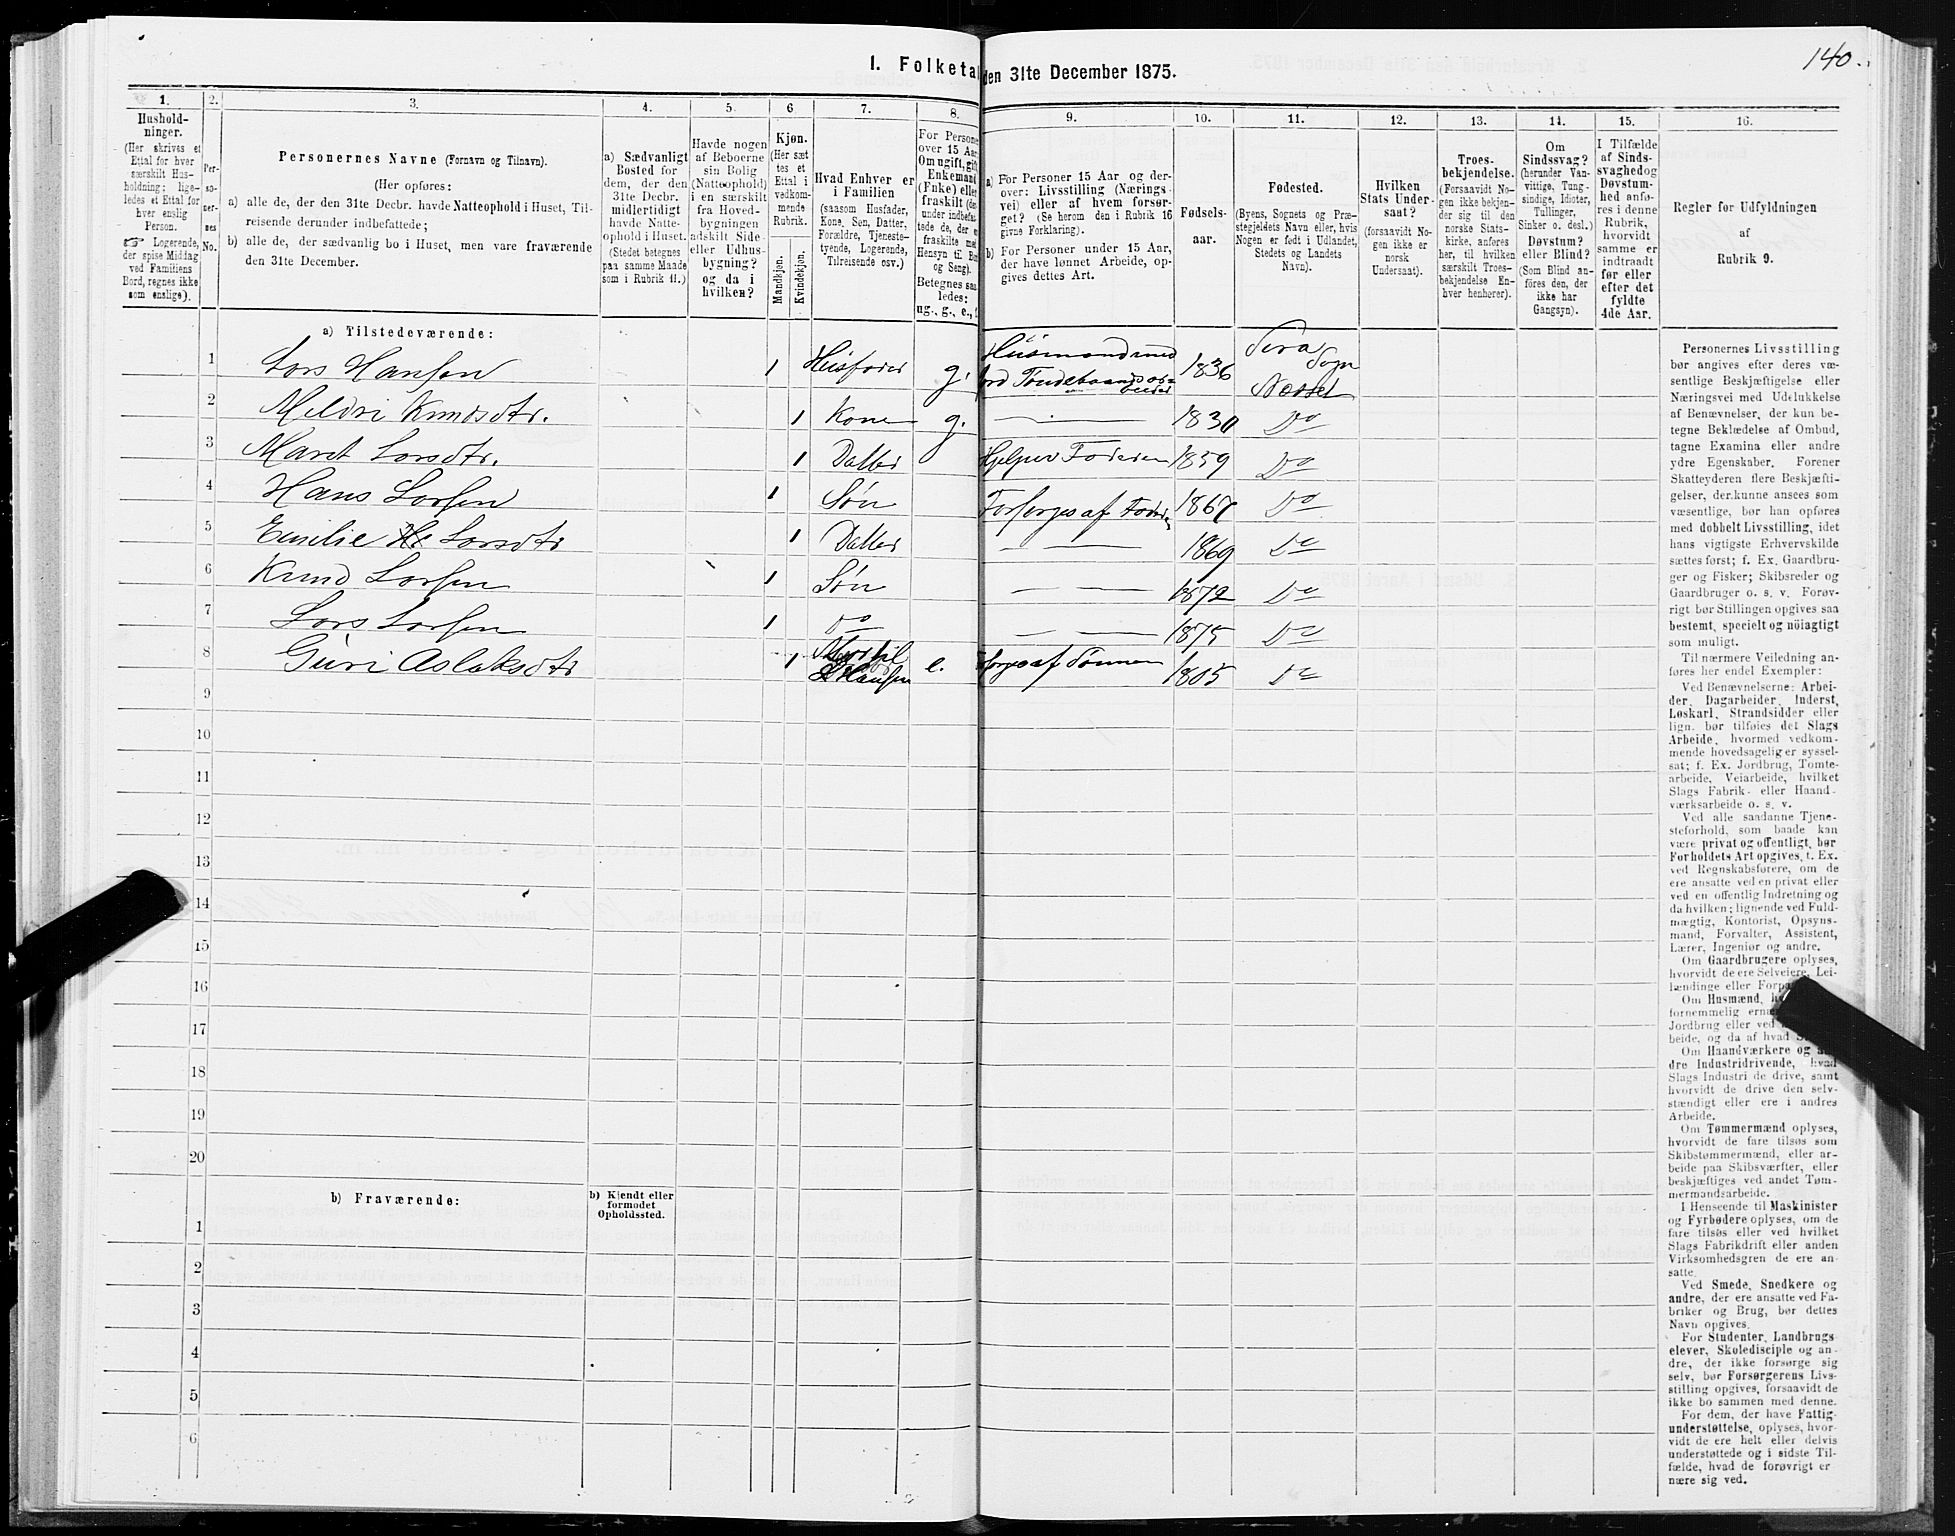 140.
I. Folketal den 31te December 1875.
1.
Hushold-
ninger.
(Her skrives et
Ettal for hver
særskilt Hus-
holdning; lige-
ledes et Ettal for
hver enslig
Person.
☞ Logerende,
der spise Middag
ved Familiens
Bord, regnes ikke
som enslige).
2.
Per-
so-
ner-
nes
No.
3.
Personernes Navne (Fornavn og Tilnavn).
(Her opføres:
a) alle de, der den 31te Decbr. havde Natteophold i Huset, Til-
reisende derunder indbefattede;
b) alle de, der sædvanlig bo i Huset, men vare fraværende
den 31te December.
4.
a) Sædvanligt
Bosted for
dem, der den
31te Decbr.
midlertidigt
havde Natte-
ophold i Huset.
(Stedet betegnes
paa samme Maade
som i Rubrik 11.)
5.
Havde nogen
af Beboerne
sin Bolig
(Natteophold)
i en særskilt
fra Hoved-
bygningen
adskilt Side-
eller Udhus-
bygning?
og da i
hvilken?
6
Kjøn.
(Her sæt
tes et
Ettal i
vedkom-
mende
Rubrik.
Mandkjøn.
Kvindekjøn.
7.
Hvad Enhver er
i Familien
(saasom Husfader,
Kone, Søn, Datter,
Forældre, Tjeneste-
tyende, Logerende,
Tilreisende osv.)
8.
For Persone
over 15 Aar
Om ugift, gift
Enkemand
(Enke) eller
fraskilt (der
under indbefat
tede de, der er
fraskilte med
Hensyn til Bor
og Seng).
Betegnes saa
ledes:
ug., g., e., f.
9.
a) For Personer 15 Aar og der-
over: Livsstilling (Nærings-
vei) eller af hvem forsør-
get? (Se herom den i Rubrik 16
givne Forklaring).
b) For Personer under 15 Aar,
der have lønnet Arbeide, op-
gives dettes Art.
10.
Fødsels-
aar.
11.
Fødested.
(Byens, Sognets og Præ-
stegjeldets Navn eller, hvis
Nogen er født i Udlandet,
Stedets og Landets
Navn).
12.
Hvilken
Stats Under-
saat?
(forsaavidt No-
gen ikke er
norsk
Undersaat).
13.
Troes-
bekjendelse.
(Forsaavidt No-
gen ikke bekjen-
der sig til den
norske Stats-
kirke, anføres
her, til hvilken
særskilt Troes-
bekjendelse En-
hver henhører).
14.
Om
Sindssvag?
(herunder Van-
vittige, Tung-
sindige, Idioter,
Tullinger,
Sinker o. desl.)
Døvstum?
eller Blind?
(Som Blind an-
føres den, der
ikke har
Gangsyn).
15.
I Tilfælde
af Sinds-
svaghed og
Døvstum-
hed anfø-
res i denne
Rubrik,
hvorvidt
samme er
indtraadt
før eller
efter det
fyldte
4de Aar.
16.
Regler for Udfyldningen
af
Rubrik 9.
a) Tilstedeværende:
1 Lars Hansen 1 Husfader g. Husmand med
Jord Tøndebaandsar=
beider 1836 Vera
Sogn
Nesset
2 Meldri Knudsdtr. 1 Kone g. — 1830 Do
3 Maret Larsdtr. 1 Datter Hjelper Faderen 1859 Do
4 Hans Larsen 1 Søn Forsørges af Faderen 1867 Do
5 Emilie Larsdtr 1 Datter — — 1869 Do
6 Knud Larsen 1 Søn — — 1872 Do
7 Lars Larsen 1 do — — 1875 Do
8 Guri Aslaksdtr 1 Moder til
L Hansen e. Forsørges af Sønnen 1805 Do
9
10
11
12
13
14
15
16
17
18
19
20
b) Fraværende:
b) Kjendt eller
formodet
Opholdssted.
1
2
3
4
5
6
Personernes Livsstilling
bør angives efter deres væ-
sentlige Beskjæftigelse eller
Næringsvei med Udelukkelse
af Benævnelser, der kun be-
tegne Beklædelse af Ombud,
tagne Examina eller andre
ydre Egenskaber. Forener
Skatteyderen flere Beskjæfti-
gelser, der kunne ansees som
væsentlige, bør han opføres
med dobbelt Livsstilling, idet
hans vigtigste Erhvervskilde
sættes først; f. Ex. Gaardbru-
ger og Fisker; Skibsreder og
Gaardbruger o. s. v. Forøv-
rigt bør Stillingen opgives saa
bestemt, specielt og nöiagtigt
som muligt.
Til nærmere Veiledning an-
føres her endel Exempler:
Ved Benævnelserne: Arbei-
der, Dagarbeider, Inderst,
Løskarl, Strandsidder eller
lign. bør tilføies det Slags
Arbeide, hvormed vedkom-
mende hovedsagelig er syssel-
sat; f. Ex. Jordbrug, Tomte-
arbeide, Veiarbeide, hvilket
Slags Fabrik- eller Haand-
værksarbeide o. s. v.
Ved alle saadanne Tjene-
steforhold, som baade kan
være privat og offentligt, bør
Forholdets Art opgives, t. Ex.
ved Regnskabsførere, om de
ere ansatte ved en privat eller
ved en offentlig Indretning og
da hvilken; lignende ved Fuld-
mægtig, Kontorist, Opsyns-
mand, Forvalter, Assistent,
Lærer, Ingeniør og andre.
Om Gaardbrugere oplyses,
hvorvidt de ere Selveiere, Lei-
lændinge eller
Om Husmænd,
fornemmelig
Jordbrug eller ved
beide, og da af hvad
Om Haandværkere og
dre Industridrivende, hvad
Slags Industri de drive, samt
hvorvidt de drive den selv-
stændigt eller ere i andres
Arbeide.
Om Tømmermænd oplyses,
hvorvidt de fare tilsøs som
Skibstømmermænd, eller ar-
beide paa Skibsværfter, eller
beskjæftiges ved andet Tøm-
mermandsarbeide.
I Henseende til Maskinister
og Fyrbødere oplyses, om de
fare tilsøs eller ved hvilket
Slags Fabrikdrift eller anden
Virksomhedsgren de ere an-
satte.
Ved Smede, Snedkere og
andre, der ere ansatte ved Fa-
briker og Brug, bør dettes
Navn opgives.
For Studenter, Landbrugs
elever, Skoledisciple og an-
dre, der ikke forsørge sig
selv, bør Forsørgerens Livs-
stilling opgives, forsaavidt de
ikke bo sammen med denne.
For dem, der have Fattig-
understøttelse, oplyses, hvor-
vidt de ere helt eller delvis
understøttede og i sidste Til-
fælde, hvad de forøvrigt er
nære sig ved.